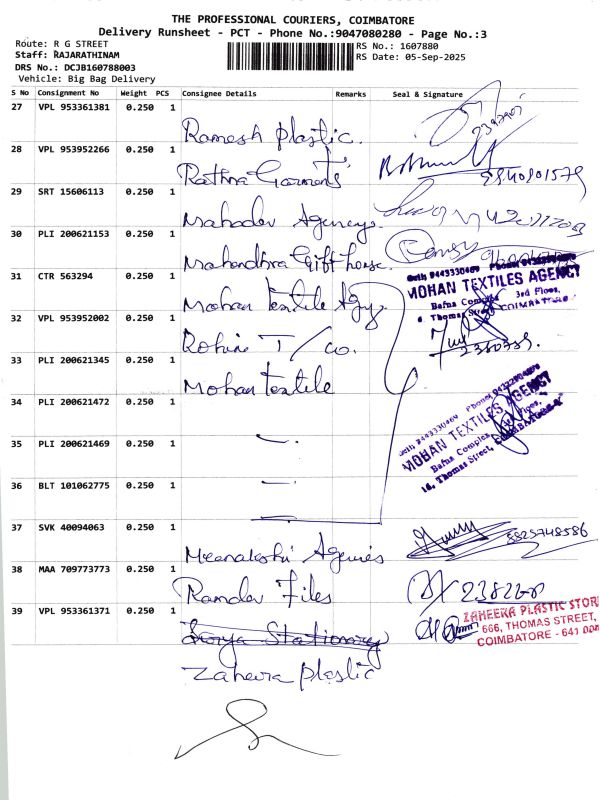 THE PROFESSIONAL COURIERS, COIMBATORE
Delivery Runsheet - PCT - Phone No.:9047080280 - Page No.:3
Route: R G STREET
Staff: RAJARATHINAM
DRS No.: DCJB160788003
Vehicle: Big Bag Delivery
RS No.: 1607880
RS Date: 05-Sep-2025
S No Consignment No Weight PCS Consignee Details Remarks Seal & Signature
27 VPL 953361381 0.250 1 Ramesh plastic.
28 VPL 953952266 0.250 1 Rathna Garments
29 SRT 15606113 0.250 1 Mahadev Agencys
30 PLI 200621153 0.250 1 Mahendhra Gift house
31 CTR 563294 0.250 1 Mohan textile Agy
MOHAN TEXTILES AGENCY
Bafna Complex 3rd Floor,
Thomas Street, COIMBATORE
32 VPL 953952002 0.250 1 Rohini T/co.
33 PLI 200621345 0.250 1 Mohan textile
34 PLI 200621472 0.250 1
MOHAN TEXTILES AGENCY
Bafna Complex
Thomas Street,
35 PLI 200621469 0.250 1
36 BLT 101062775 0.250 1
37 SVK 40094063 0.250 1 Meenakshi Agencies
38 MAA 709773773 0.250 1 Ramdev Files
39 VPL 953361371 0.250 1 Surya Stationary
Zaheera plastic
ZAHEERA PLASTIC STOR
666, THOMAS STREET,
COIMBATORE - 641